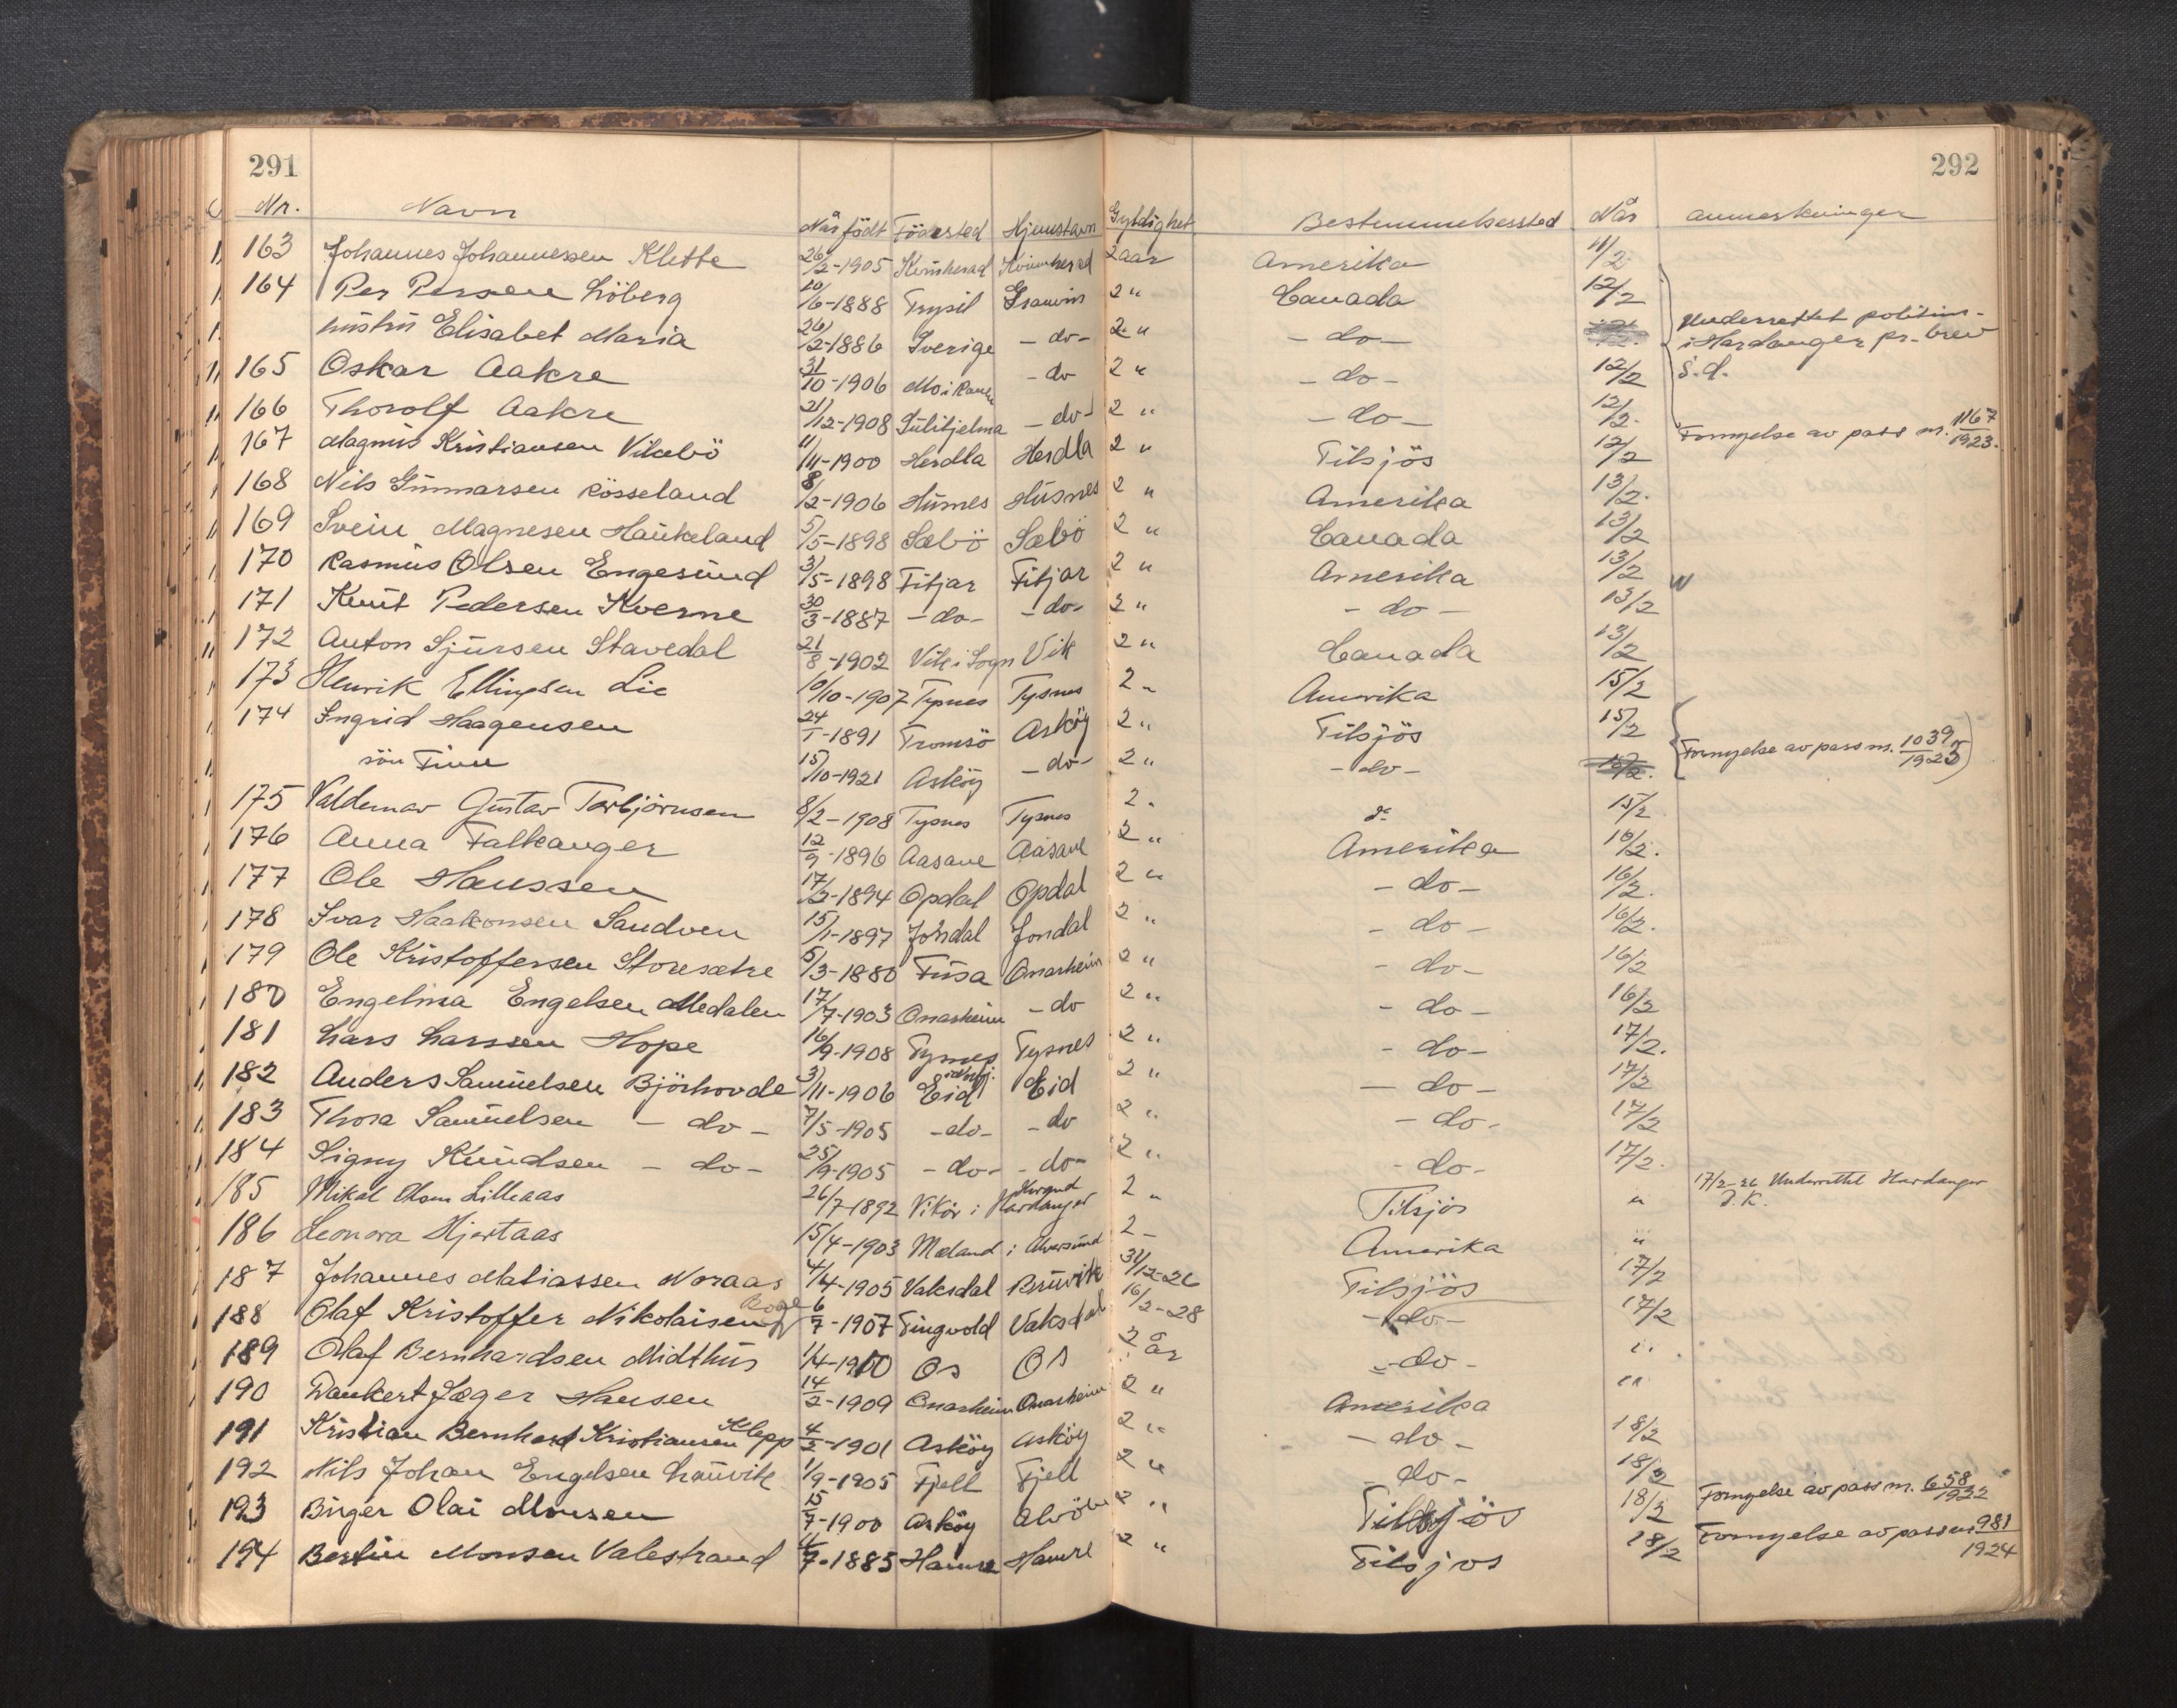 291
292
Nr. Navn Når født Födested Hjemstavn Gyldighet Bestemmelsessted Når anmerkninger
163 Johannes Johannessen Klette 26/2-1905 Kvinherad Kvinnherad 2 aar Amerika 11/2
164 Per Persen Löberg 20/6-1888 Trysil Graven 2 " Canada 12/2
hustru Elisabet Maria 26/2-1886 Sverige -do- 2 " -do- Underrettet politim. i Hardanger pr. brev s.d.
165 Oskar Aakre 31/10-1906 Mo i Rana -do 2 " -do- 12/2
166 Thorolf Aakre 21/12-1908 Sulitjelma -do- 2 " -do- 12/2.
167 Magnus Kristiansen Vikebö 11/11-1900 Herdla Herdla 2 " Tilsjös 12/2 Fornyelse av pass nr. 1167/1923.
168 Nils Gunnarsen Rösseland 8/2-1906 Husnes Husnes 2 " Amerika 13/2.
169 Svein Magnesen Haukeland 5/5-1898 Sæbö Sæbö 2 " Canada 13/2
170 Rasmus Olsen Engesund 3/5-1898 Fitjar Fitjar 2 " Amerika 13/2
171 Knut Pedersen Kverne 30/3-1887 -do- -do- 2 " -do- 13/2
172 Anton Sjursen Stavedal 21/8-1902 Vik i Sogn Vik 2 " Canada 13/2
173 Henrik Ellingsen Lie 10/10-1907 Tysnes Tysnes 2 " Amerika 15/2
174 Ingrid Haagensen 24/1-1891 Tromsö Asköy 2 " Tilsjös 15/2
sön Finn 15/10-1921 Asköy -do- 2 " -do- 15/2. Fornyelse av pass nr. 1039/1923
175 Valdemar Gustav Torbjörnsen 8/2-1908 Tysnes Tysnes 2 " do 15/2
176 Anna Falkanger 12/9-1896 Aasane Aasane 2 " Amerika 16/2.
177 Ole Hanssen 17/2-1894 Opdal Opdal 2 " -do- 16/2.
178 Ivar Haakonsen Sandven 15/1-1897 Jondal Jondal 2 " -do- 16/2.
179 Ole Kristoffersen Storesætre 5/3-1880 Fusa Onarheim 2 " -do- 16/2
180 Engelina Engelsen Medalen 17/7-1903 Onarheim -do 2 " -do- 16/2
181 Lars Larssen Hope 16/9-1908 Tysnes Tysnes 2 " -do- 17/2.
182 Anders Samuelsen Björhovde 3/11-1906 Eid Eid 2 " -do- 17/2
183 Thora Samuelsen -do- 7/5-1905 -do- -do 2 " -do- 17/2
184 Signy Knudsen -do- 25/9-1905 -do- -do- 2 " -do- 17/2.
185 Mikal Olsen Lilleaas 26/7-1892 Vikör i Hardanger 2 " Tilsjös " 17/2-26 Underrettet Hardanger P.K.
186 Leonora Hjertaas 15/4-1903 Mæland i Alversund 2 - Amerika "
187 Johannes Matiassen Noraas 4/4-1905 Vaksdal Bruvik 31/12-26 Tilsjös 17/2
188 Olaf Kristoffer Nikolaisen Boge 6/7-1907 Tingvold Vaksdal 16/2-28 -do- 17/2
189 Olaf Bernhardsen Midthus 1/4-1900 Os Os 2 år -do- "
190 Dankert Jæger Hansen 14/2-1909 Onarheim Onarheim 2 " Amerika "
191 Kristian Bernhard Kristiansen Klepp 4/2-1901 Asköy Asköy 2 " -do- 18/2
192 Nils Johan Engelsen Lauvik 1/9-1905 Fjell Fjell 2 " -do- 18/2
193 Birger Olai Monsen 15/7-1900 Asköy 2 " Tilsjös 18/2 Fornyelse av pass nr. 658/1922
194 Bertin Monsen Valestrand 11/7-1885 Hamre Hamre 2 " Tilsjös 18/2 Fornyelse av pass nr 981/1924